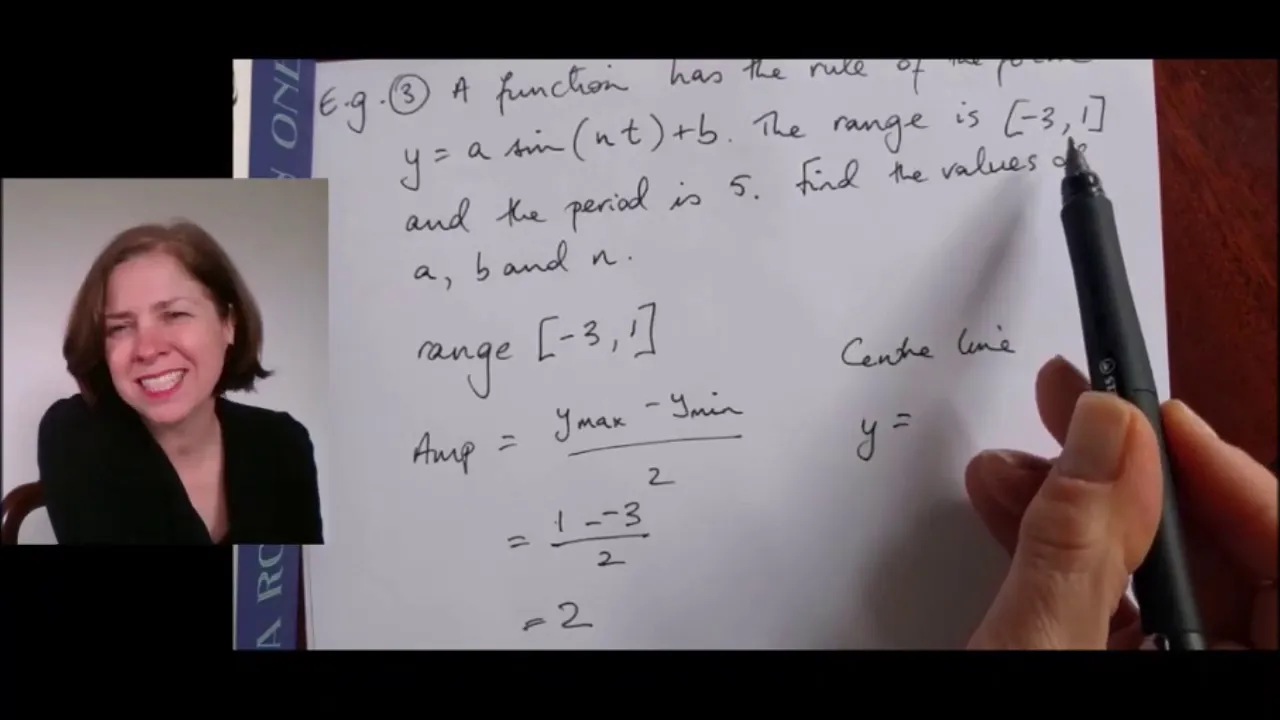 E.g. ③ A function has the rule of the form
y = a sin(nt) + b. The range is [-3, 1]
and the period is 5. Find the values of
a, b and n.
range [-3, 1]
Amp = ymax - ymin
2
= 1 - -3
2
= 2
Centre line
y =
ONE
A RO